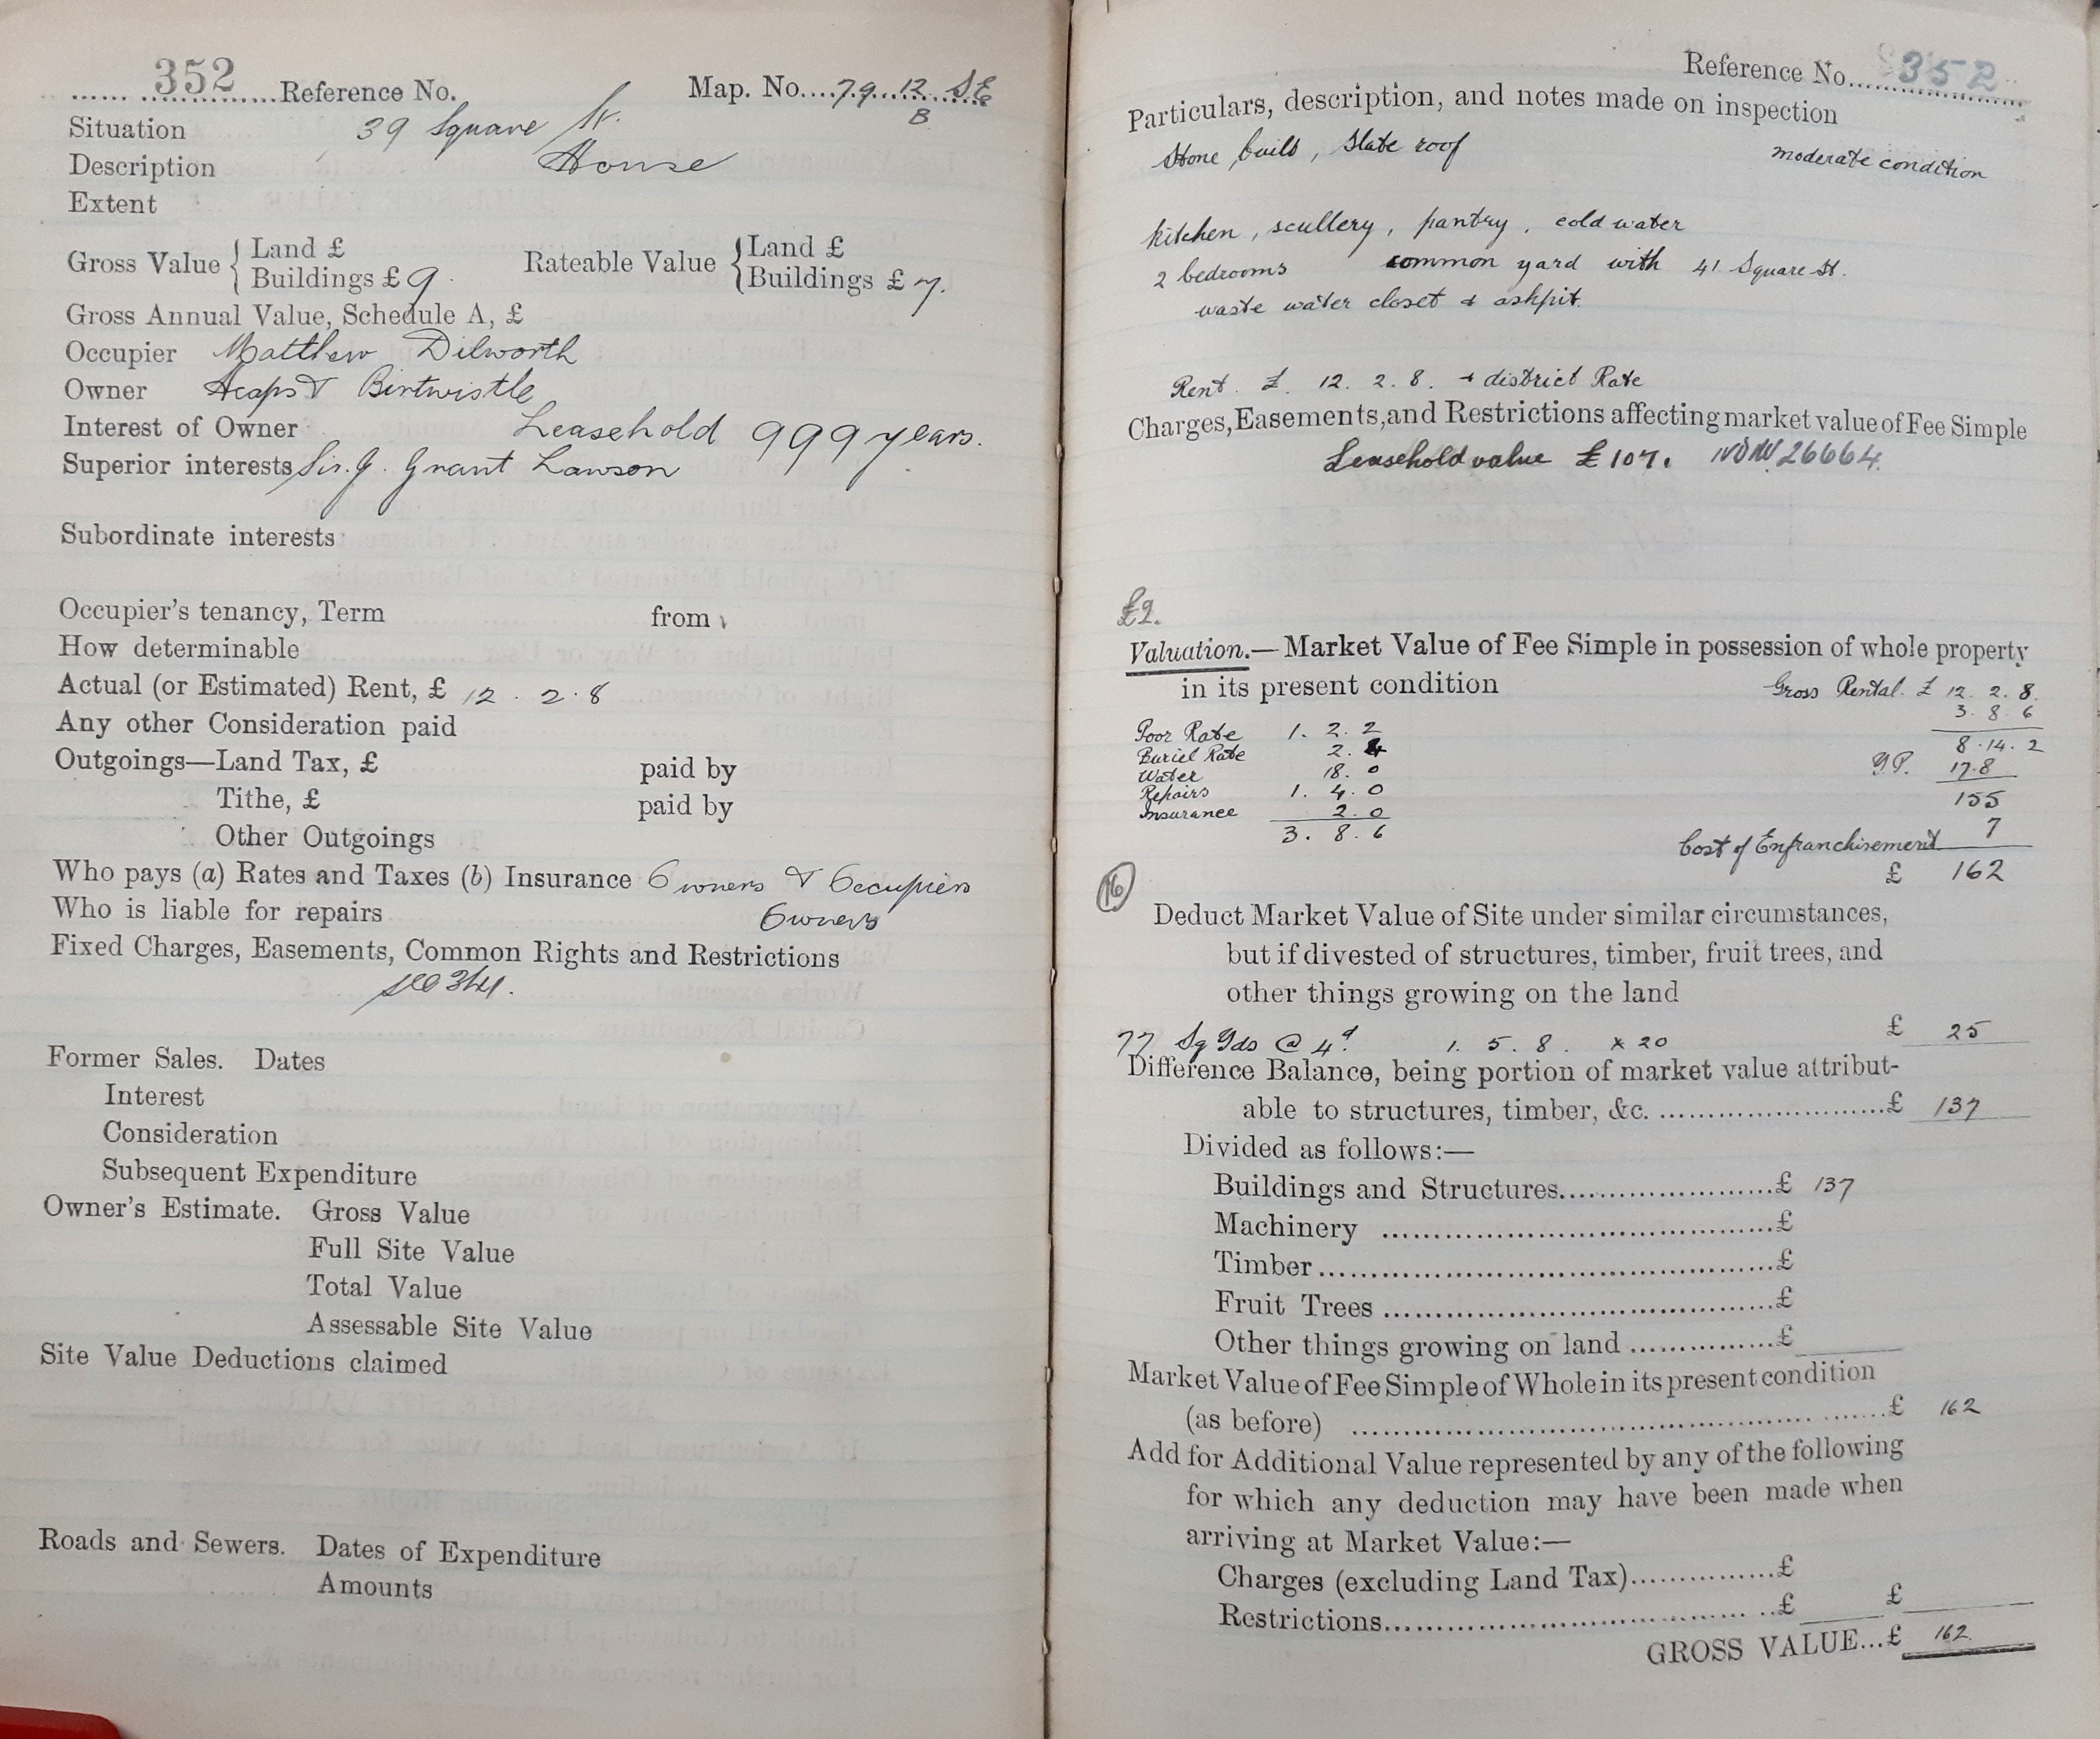 352 Reference No. Map. No. 79 12 S.E
B
Situation 39 Square St.
Description House
Extent
Gross Value { Land £ Rateable Value { Land £
Buildings £ 9. Buildings £ 7.
Gross Annual Value, Schedule A, £
Occupier Matthew Dilworth
Owner Heaps & Birtwistle
Interest of Owner Leasehold 999 years.
Superior interests Sir. J. Grant Lawson
Subordinate interests
Occupier's tenancy, Term from
How determinable
Actual (or Estimated) Rent, £ 12 . 2 . 8
Any other Consideration paid
Outgoings—Land Tax, £ paid by
Tithe, £ paid by
Other Outgoings
Who pays (a) Rates and Taxes (b) Insurance Owners & Occupiers
Who is liable for repairs Owners
Fixed Charges, Easements, Common Rights and Restrictions
see 344.
Former Sales. Dates
Interest
Consideration
Subsequent Expenditure
Owner's Estimate. Gross Value
Full Site Value
Total Value
Assessable Site Value
Site Value Deductions claimed
Roads and Sewers. Dates of Expenditure
Amounts
Reference No. 352
Particulars, description, and notes made on inspection
Stone built, Slate roof moderate condition
kitchen, scullery, pantry, cold water
2 bedrooms common yard with 41 Square St.
waste water closet & ashpit.
Rent. £. 12. 2. 8. + district Rate
Charges, Easements, and Restrictions affecting market value of Fee Simple
Leasehold value £107. 26664.
£9.
Valuation.—Market Value of Fee Simple in possession of whole property
in its present condition Gross Rental. £ 12. 2. 8.
3. 8. 6
Poor Rate 1. 2. 2
8. 14. 2
Buriel Rate 2. 4
Y.P. 17.8
Water 18. 0
Repairs 1. 4. 0
155
Insurance 2. 0
7
3. 8. 6
Cost of Enfranchisement
£ 162
16
Deduct Market Value of Site under similar circumstances,
but if divested of structures, timber, fruit trees, and
other things growing on the land
77 Sq Yds @ 4d. 1. 5. 8. x 20 £ 25
Difference Balance, being portion of market value attribut-
able to structures, timber, &c. ........................£ 137
Divided as follows:—
Buildings and Structures........................£ 137
Machinery ........................£
Timber........................£
Fruit Trees ........................£
Other things growing on land ................£
Market Value of Fee Simple of Whole in its present condition
(as before) ........................£ 162
Add for Additional Value represented by any of the following
for which any deduction may have been made when
arriving at Market Value:—
Charges (excluding Land Tax)...............£
Restrictions........................£ £
GROSS VALUE...£ 162